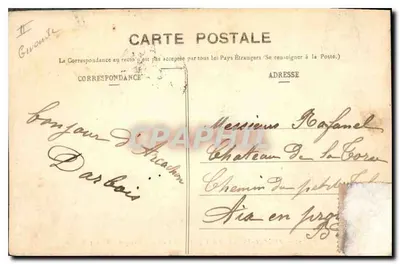 II
CARTE POSTALE
La Correspondance au recto n'est pas acceptée par tous les Pays Étrangers (Se renseigner à la Poste.)
CORRESPONDANCE
ADRESSE
bonjour d'Arcachon
Darbois
Messieurs Rafanel
Chateau de la Tore
Chemin du petit
Aix en prov
CPARAMA